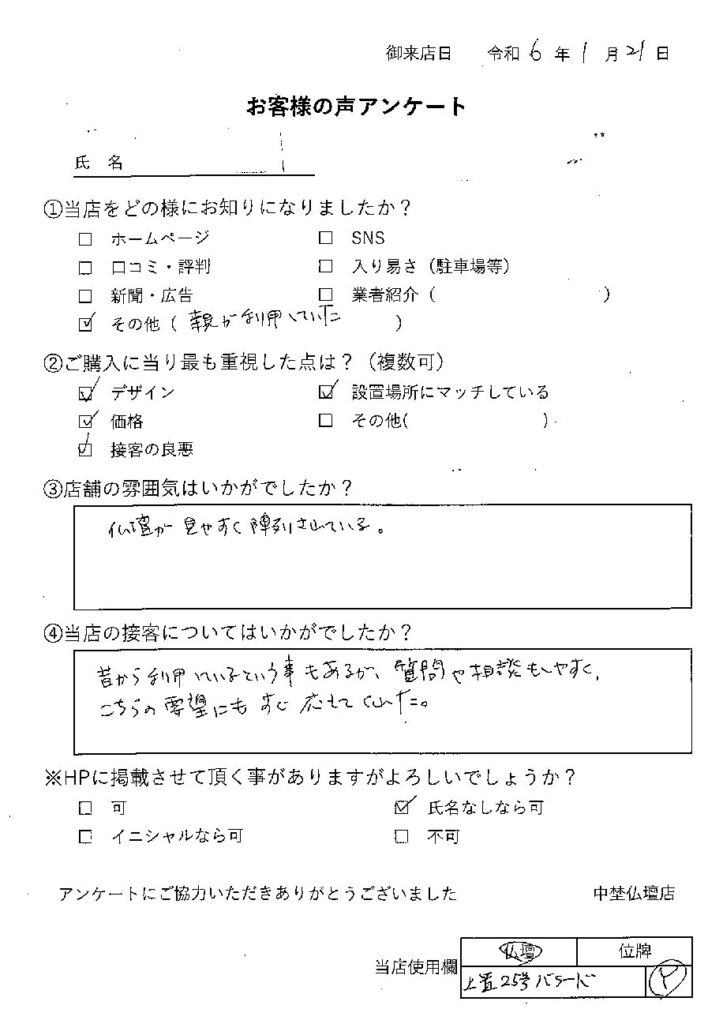 御来店日 令和 6 年 1 月 21 日
お客様の声アンケート
氏 名
①当店をどの様にお知りになりましたか？
□ ホームページ □ SNS
□ 口コミ・評判 □ 入り易さ（駐車場等）
□ 新聞・広告 □ 業者紹介 ( )
☑ その他 ( 親が利用していた )
②ご購入に当り最も重視した点は？（複数可）
☑ デザイン ☑ 設置場所にマッチしている
☑ 価格 □ その他( )
☑ 接客の良悪
③店舗の雰囲気はいかがでしたか？
仏壇が見やすく陳列されている。
④当店の接客についてはいかがでしたか？
昔から利用しているという事もあるが、質問や相談もしやすく、
こちらの要望にもすぐ応えてくれた。
※HPに掲載させて頂く事がありますがよろしいでしょうか？
□ 可 ☑ 氏名なしなら可
□ イニシャルなら可 □ 不可
アンケートにご協力いただきありがとうございました 中埜仏壇店
当店使用欄 仏壇 位牌
上置25号 バラード P